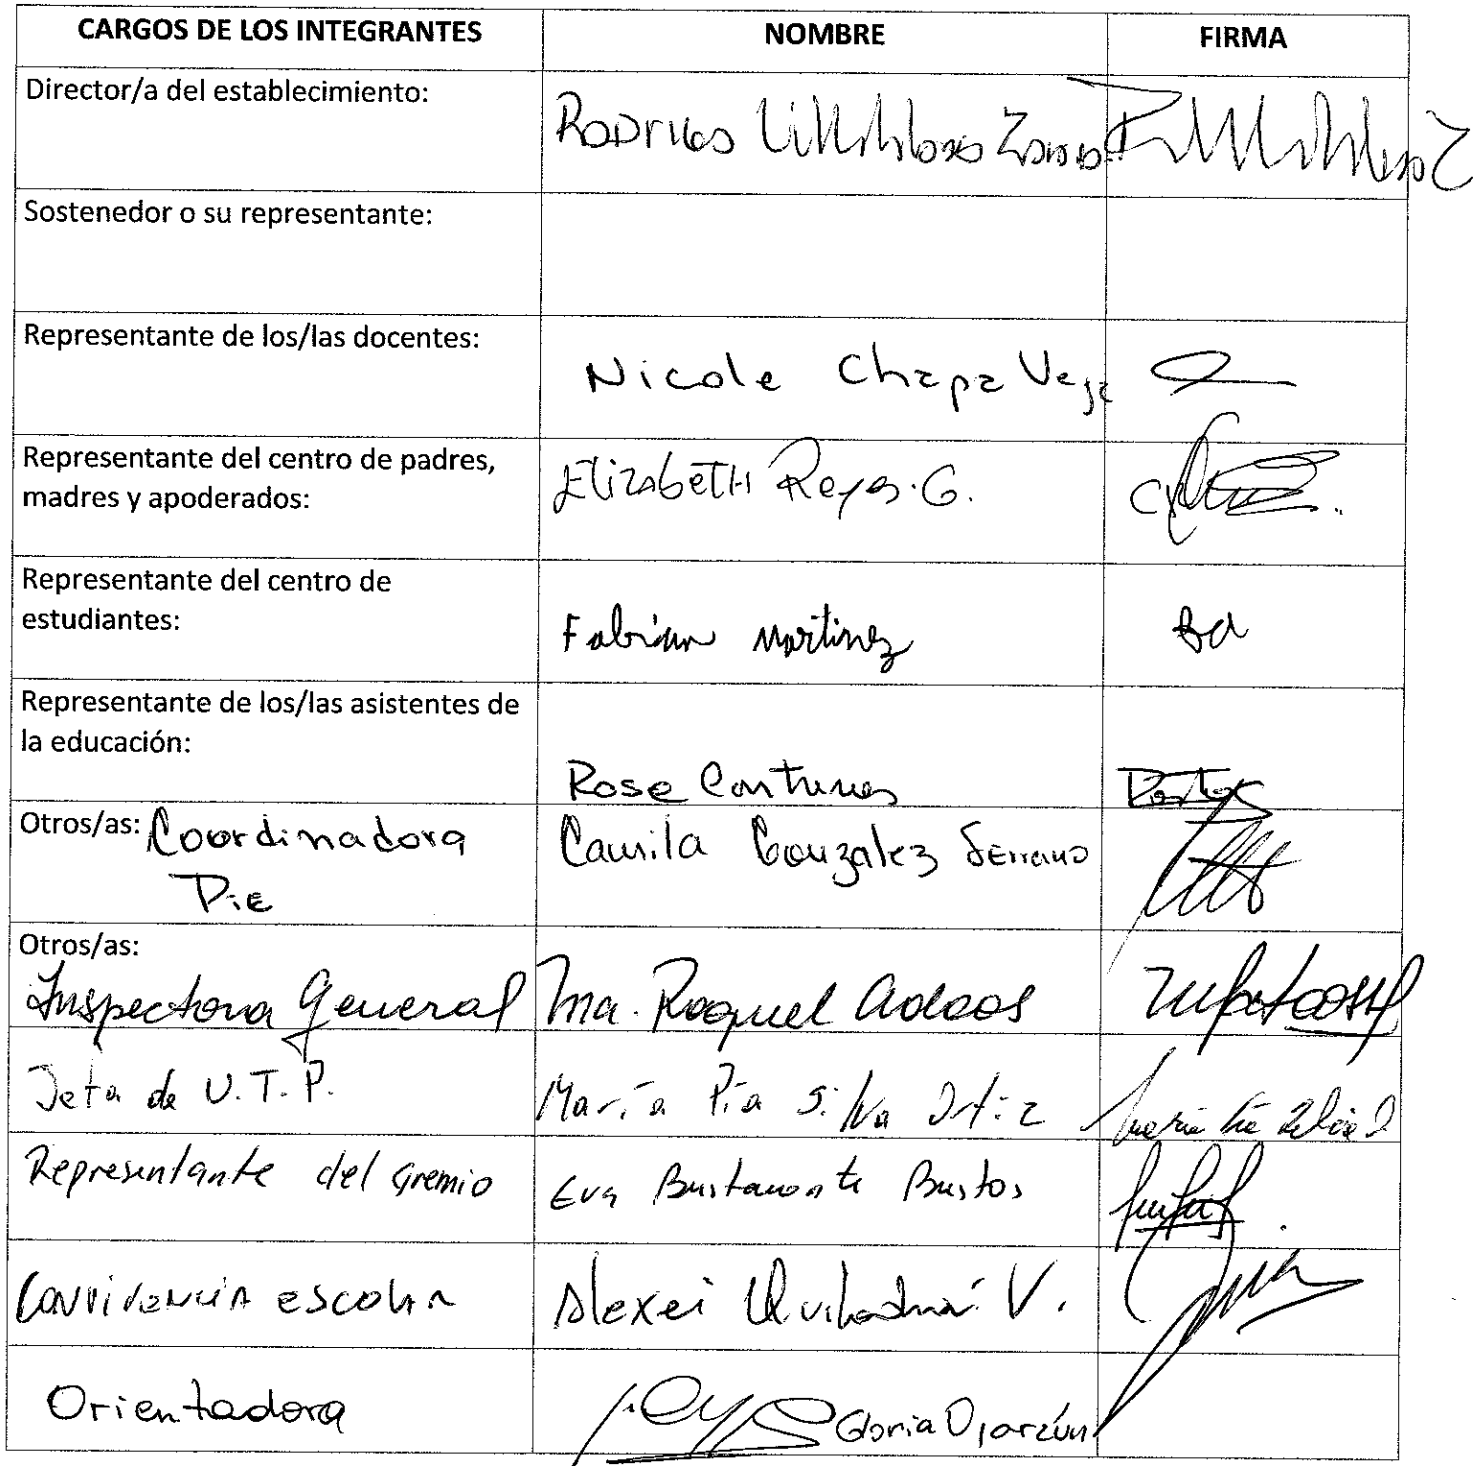 CARGOS DE LOS INTEGRANTES NOMBRE FIRMA
Director/a del establecimiento:
Rodrigo Villalobos
Sostenedor o su representante:
Representante de los/las docentes:
Nicole Chapa Vega
Representante del centro de padres,
madres y apoderados:
Elizabeth Reyes. G.
Representante del centro de
estudiantes:
Fabián Martinez
Representante de los/las asistentes de
la educación:
Rose Contreras
Otros/as: Coordinadora
Pie
Camila Gonzalez Serrano
Otros/as:
Inspectora General Ma. Raquel
Jefa de U.T.P. María Pía Silva Ortiz
Representante del Gremio Eva Bustamante Bustos
Convivencia escolar Alexei V.
Orientadora Gloria Ojarzún